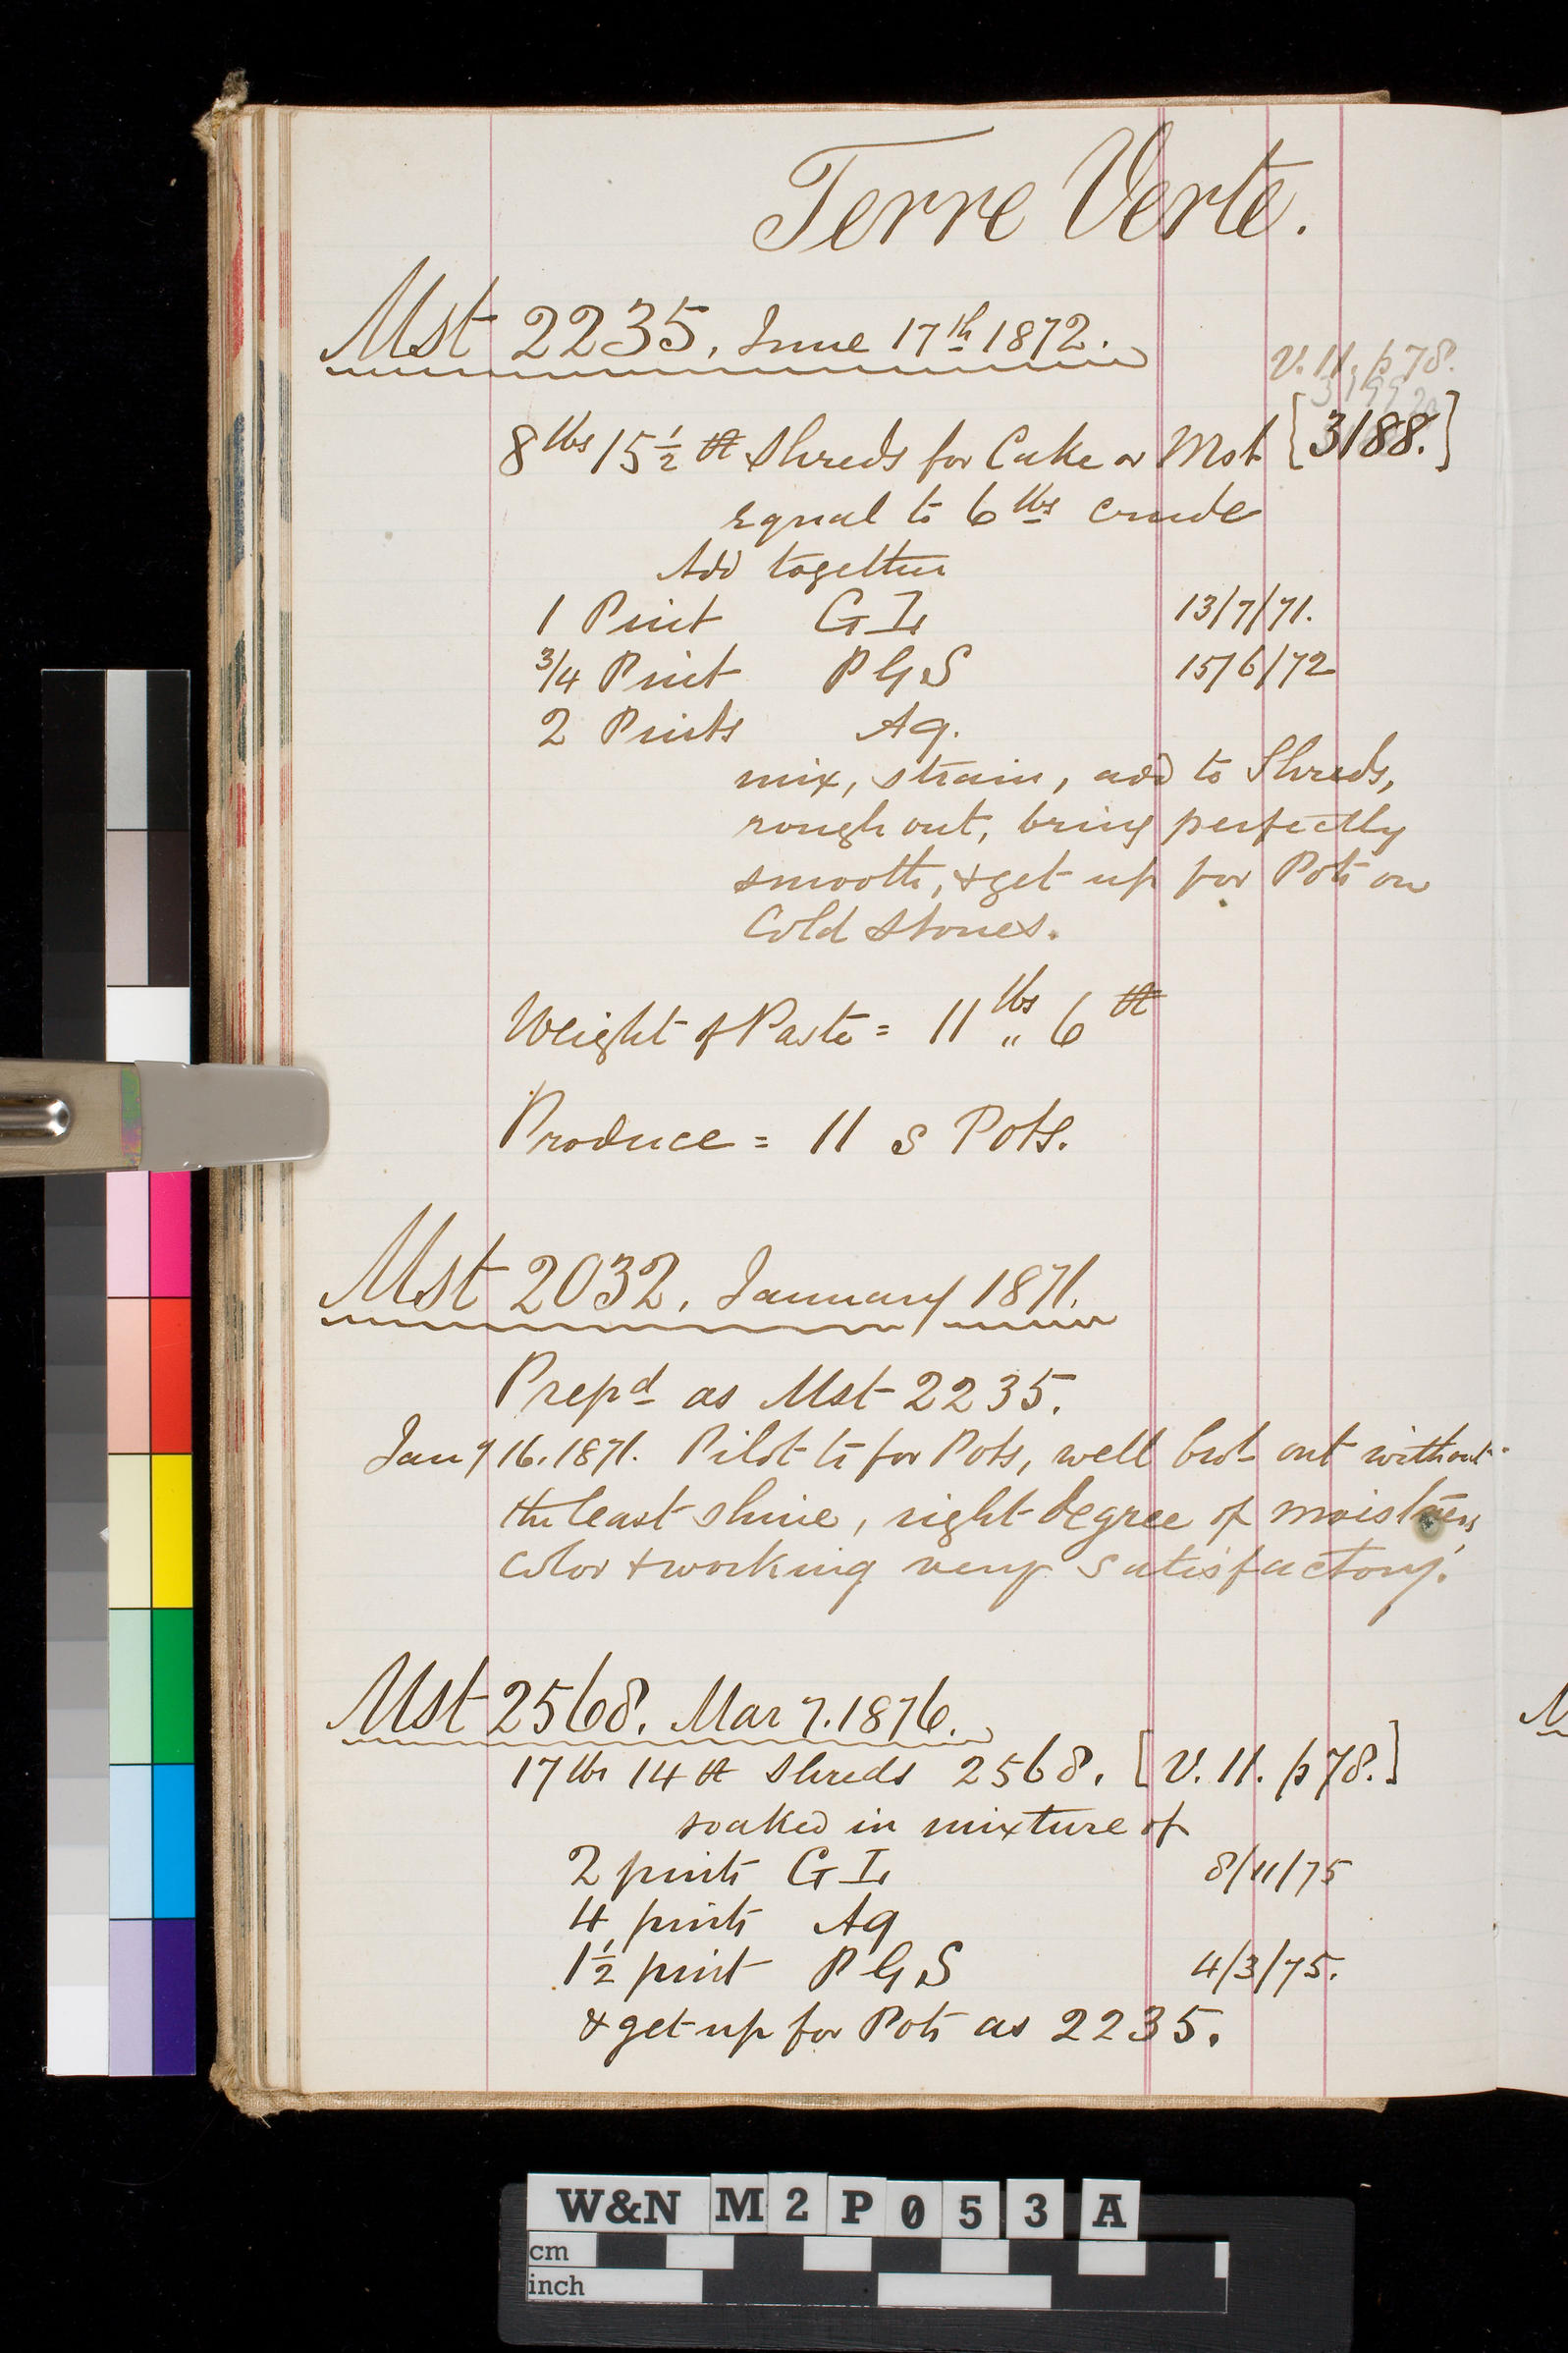 Terre Verte.
Mst 2235, June 17th 1872.
V. 11. p 78.
8 lbs 15 1/2 Shreds for Cake or Mst [3188.]
equal to 6 lbs crude
Add together
1 Pint G I 13/7/71.
3/4 Pint P G S 15/6/72
2 Pints Aq.
mix, strain, add to Shreds,
rough out, bring perfectly
smooth, & get up for Pots on
Cold Stones.
Weight of Paste = 11 lbs " 6
Produce = 11 s Pots.
Mst 2032. January 1871.
Prepd as Mst 2235.
Jany 16. 1871. Pilot is for Pots, well brot out without
the least shine, right degree of moistness,
color & working very satisfactory.
Mst 2568. Mar 7. 1876.
17 lbs 14 Shreds 2568. [V. 11. p 78.]
soaked in mixture of
2 pints G I 8/11/75
4 pints Aq
1 1/2 pint P G S 4/3/75.
& get up for Pots as 2235.
W&N M2P053A
cm
inch